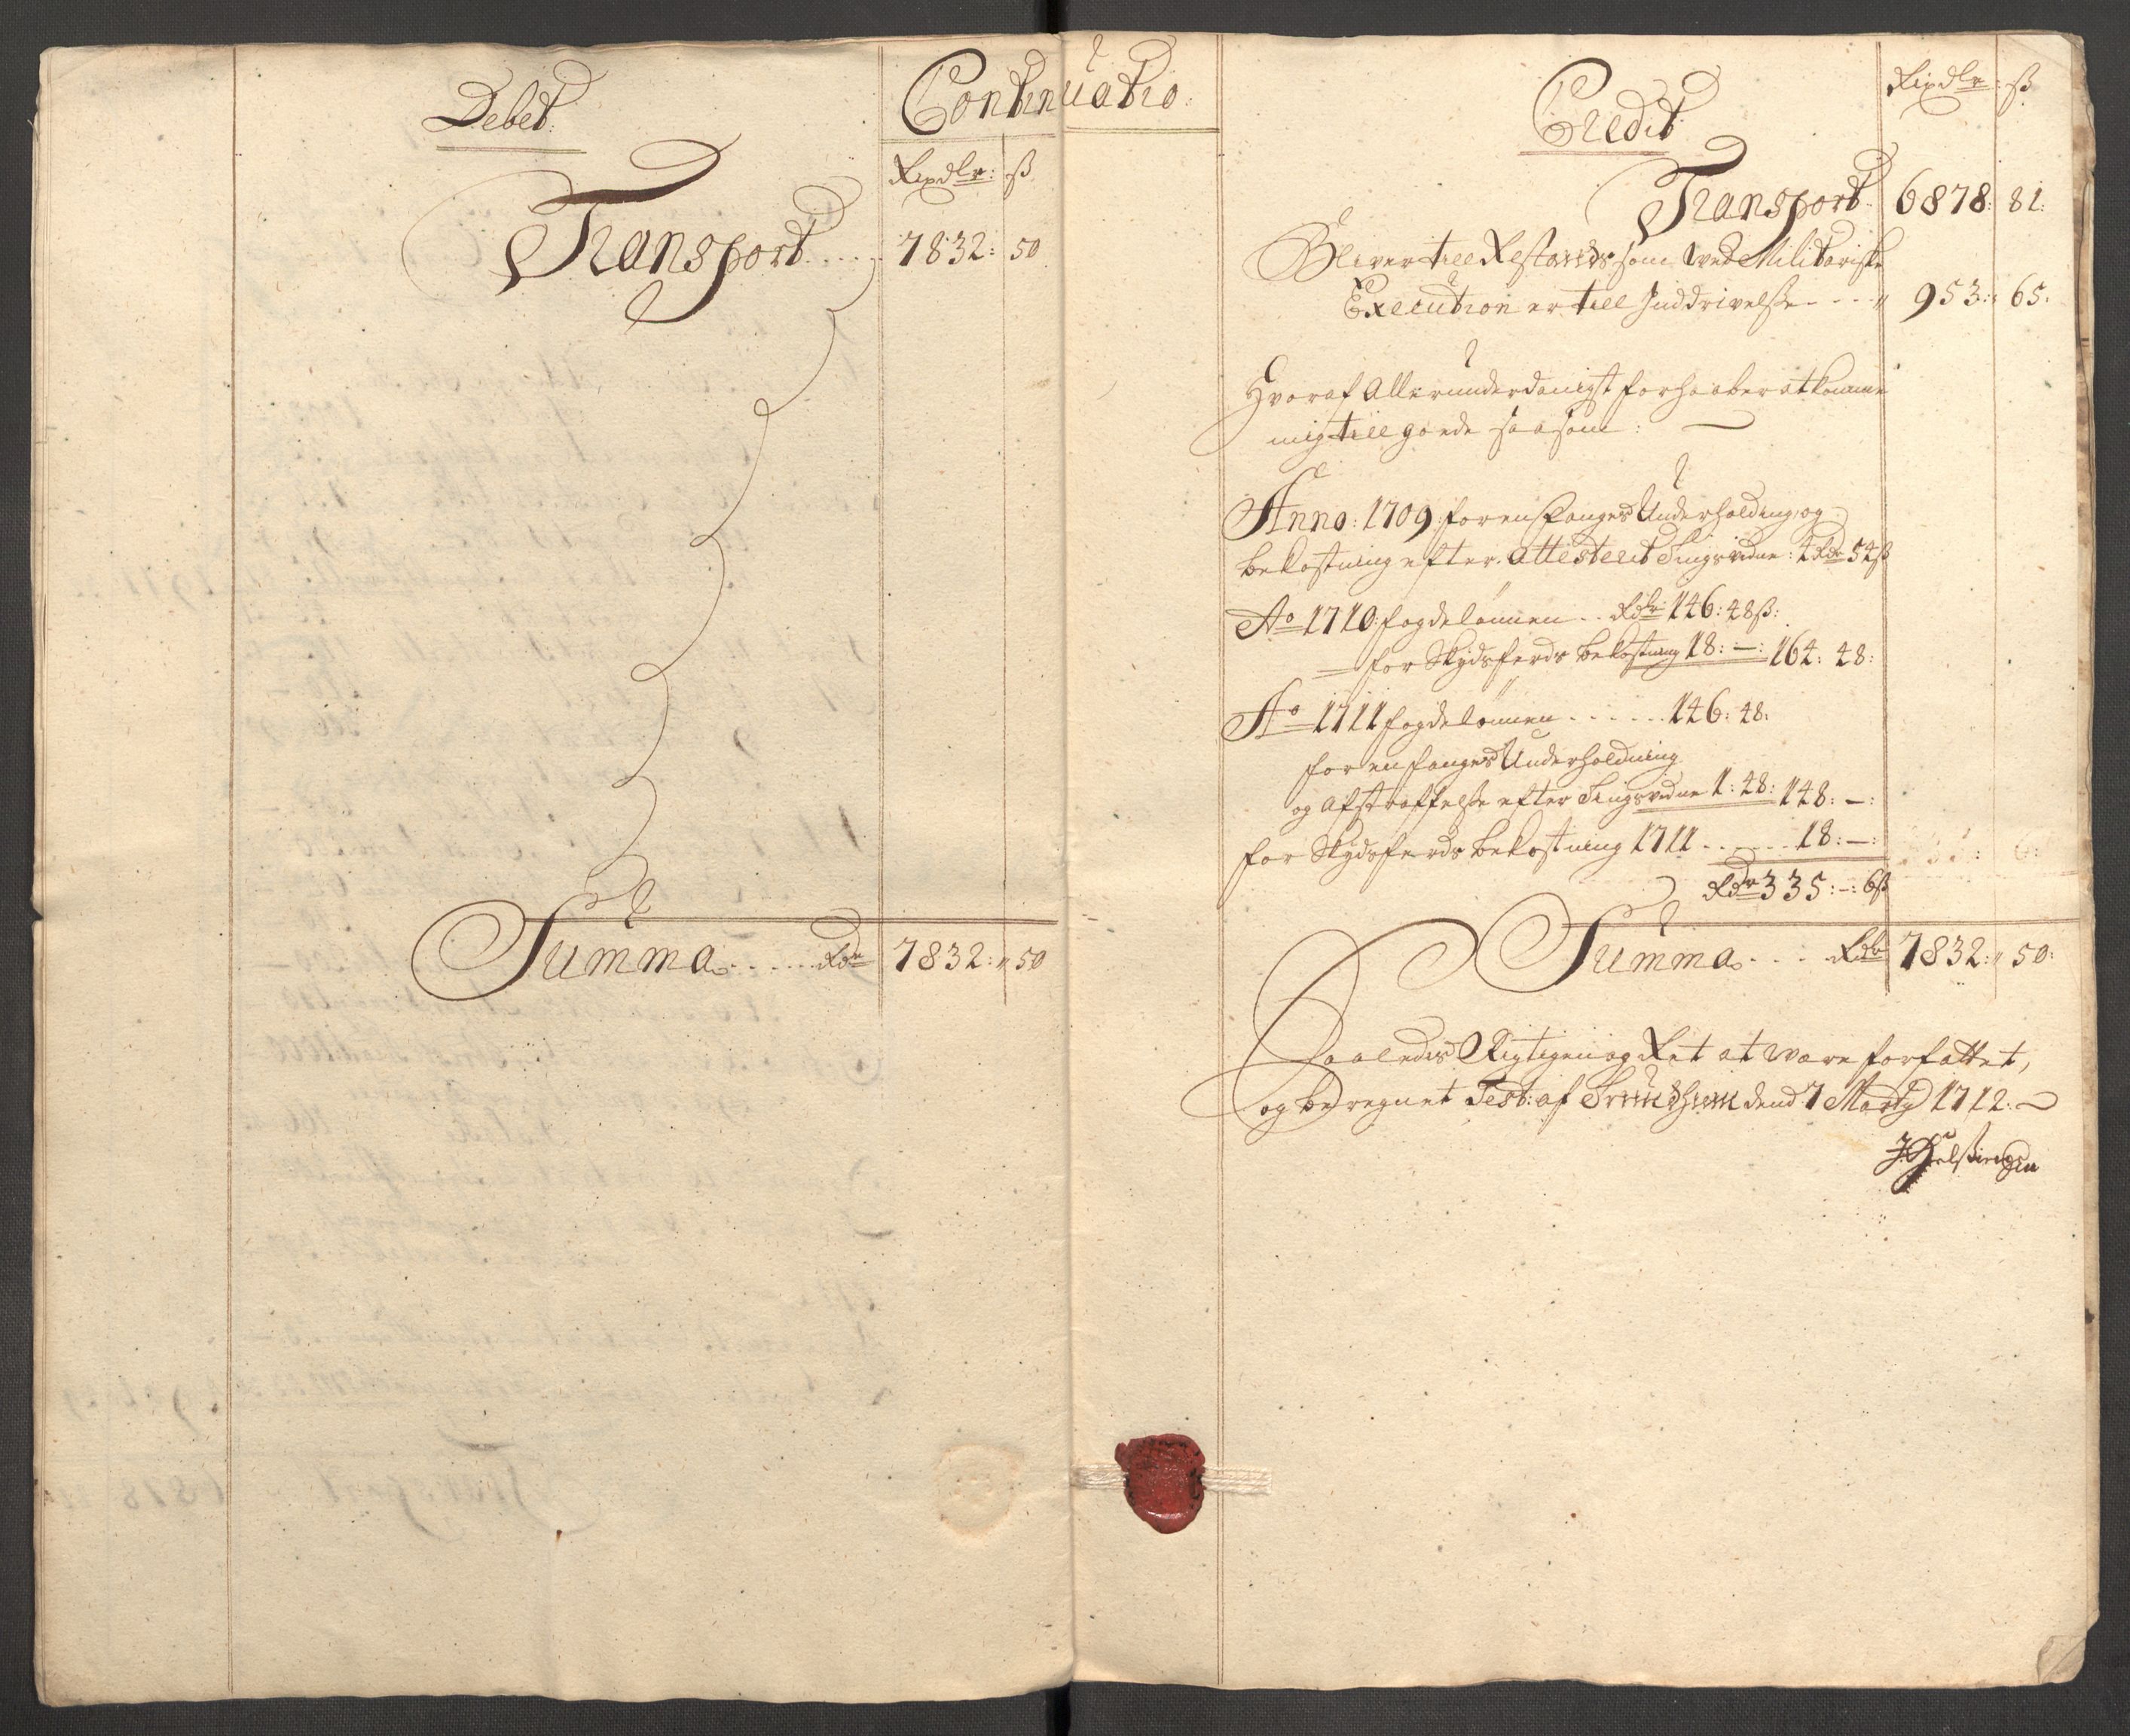 Continuatio:
Debet
Rixdlr: ß
Transport ..... 7832: 50
Summa ...... Rdr 7832: 50
Credit
Rixdlr: ß
Transport 6878: 81:
Bliver till Restands som wed Militariske
Execution er till Inddrivelsse - - - 953: 65.
Hvoraf Allerunderdanigst forhaaber at komme
mig till goede saasom:
Anno: 1709 for en Fanges Underholding, og
bekostning efter Attesterit Tingsvidne: 4 Rdr 54 ß
Ao 1710: fogdelønnen .. Rdr 146: 48 ß:
for Skydsferds bekostning 18: —: 164: 48:
Ao 1711 fogdelønnen ...... 146: 48:
for en fanges Underholdning
og Afstraffelsse efter Tingsvidne 1: 48: 148: —:
for Skydsferds bekostning 1711 ...... 18: —:
Rdr 335: —: 6 ß
Summa .... Rdr 7832: 50:
Saaledis Rigtigen og Ret at være forfattet,
og beregnet Test: af Trundhiem dend 7 Marty 1712.